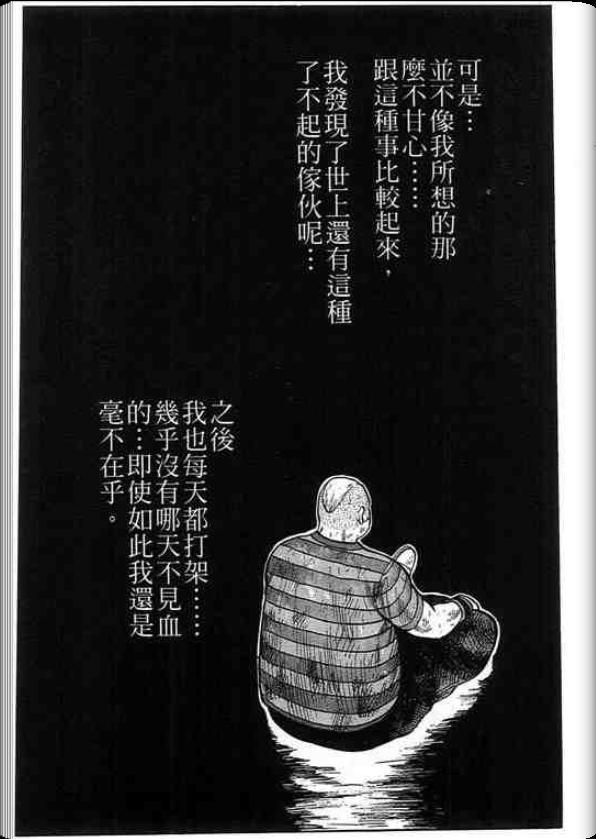 可是…
並不像我所想的那
麼不甘心……
跟這種事比較起來，
我發現了世上還有這種
了不起的傢伙呢…
之後
我也每天都打架……
幾乎沒有哪天不見血
的…即使如此我還是
毫不在乎。